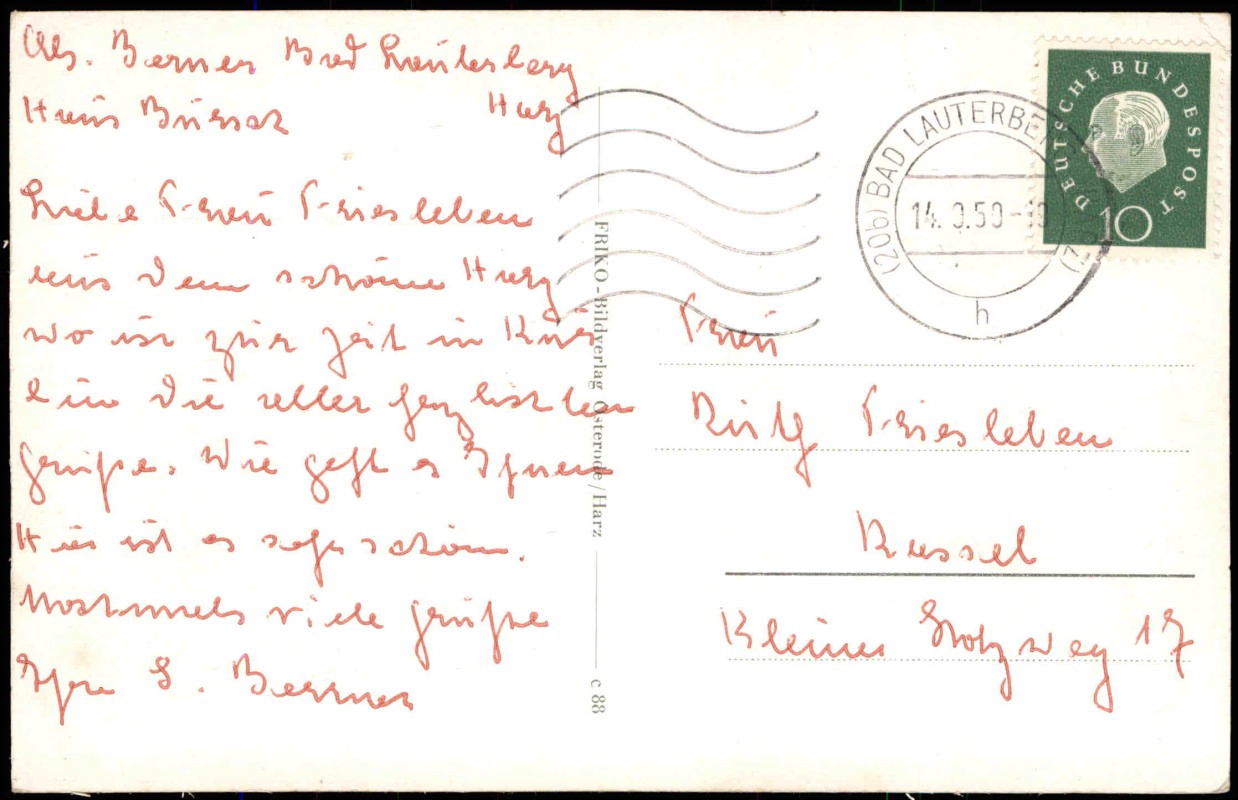 Abs. Berner Bad Lauterberg
Haus Bursch Harz
Liebe Frau Friesleben
aus dem schöne Harz
wo ist zur zeit in Kur
die aller herzlisten
grüße. Wie geht es Ihnen
Hier ist es sehr schön.
Nochmals viele grüße
Ihre S. Berner
FRIKO-Bildverlag Osterode/Harz
c 88
DEUTSCHE BUNDESPOST
10
(20b) BAD LAUTERBERG (HARZ)
14. 9.59-18
h
Frau
Ruth Friesleben
Kassel
Kleiner Holzweg 17